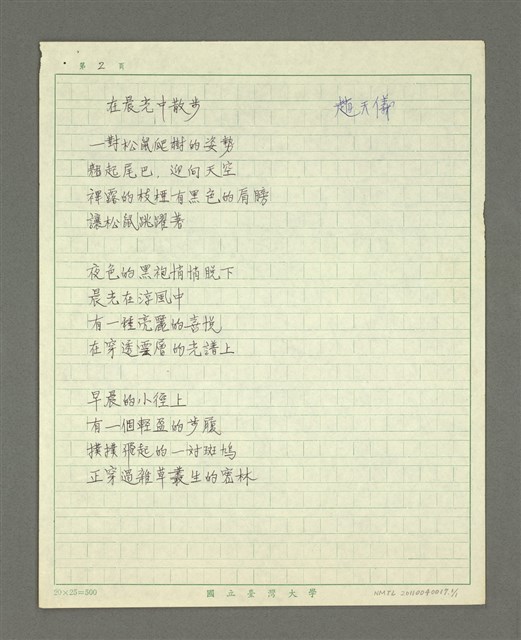 第 2 頁
在晨光中散步 趙天儀
一對松鼠爬樹的姿勢
翹起尾巴，迎向天空
裸露的枝椏有黑色的肩膀
讓松鼠跳躍著
夜色的黑袍悄悄脫下
晨光在涼風中
有一種亮麗的喜悅
在穿透雲層的光譜上
早晨的小徑上
有一個輕盈的步履
撲撲飛起的一对斑鳩
正穿過雜草叢生的密林
20×25=500 國立臺灣大學 NMTL